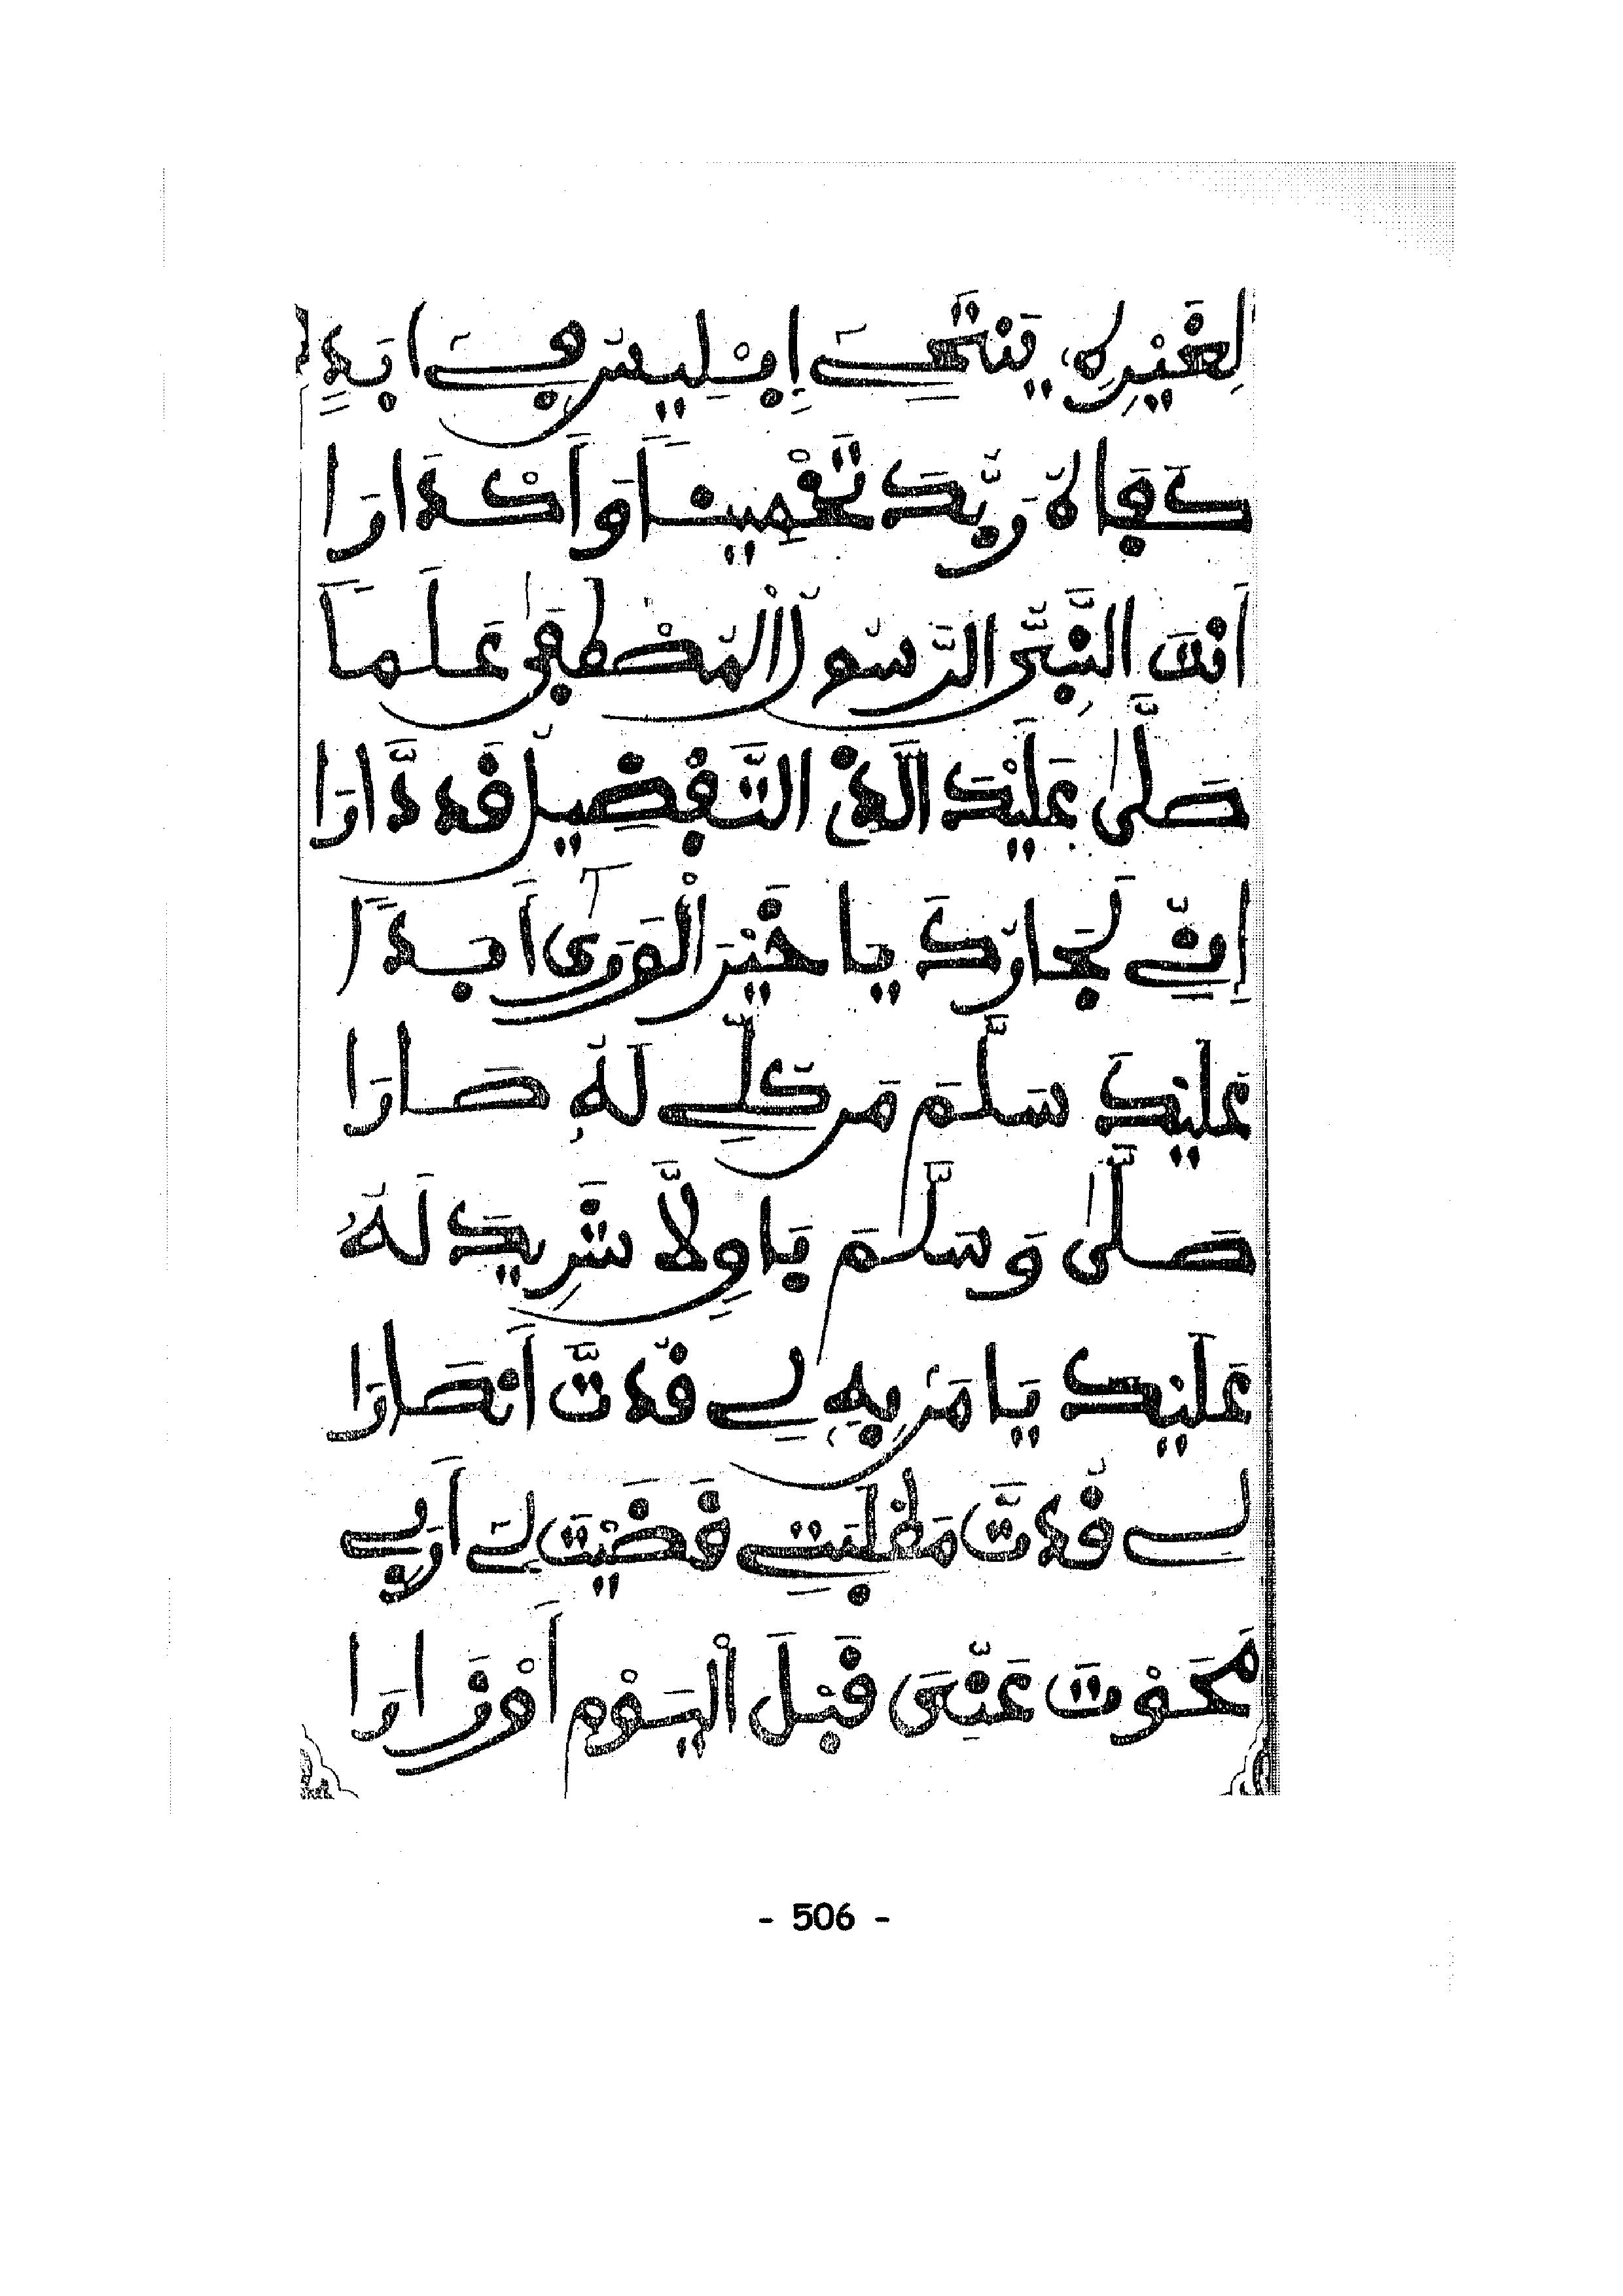 لِغَيْرِهِ يَنْتَحِي إِبْلِيسُ فِي أَبَدٍ
كَفَاهُ رَبُّكَ تَخْمِينًا وَأَكْدَارَا
أَنْتَ النَّبِيُّ الرَّسُولُ الْمُصْطَفَى عَلَمًا
صَلَّى عَلَيْكَ الَّذِي التَّفْضِيلُ قَدْ دَارَا
إِنِّي لَجَارُكَ يَا خَيْرَ الْوَرَى أَبَدًا
عَلَيْكَ سَلَّمَ مَنْ كُلِّي لَهُ صَارَا
صَلَّى وَسَلَّمَ بَاقٍ لَا شَرِيكَ لَهُ
عَلَيْكَ يَا مَنْ بِهِ لِي قُدْتَّ أَنْصَارَا
لِي قُدْتَّ مَطْلَبَتِي قَضَيْتَ لِي أَرَبِي
مَحَوْتَ عَنِّيَ قَبْلَ الْيَوْمِ أَوْزَارَا
- 506 -